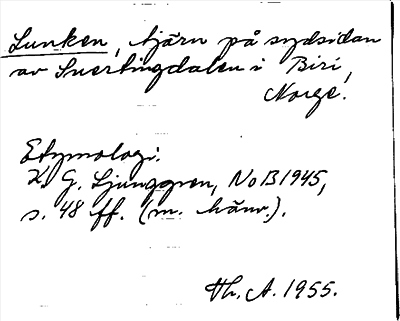 Lunken, tjärn på sydsidan
av Snertingdalen i Biri,
Norge.
Etymologi:
K. G. Ljunggren, NoB 1945,
s. 48 ff. (m. hänv.).
Th. A. 1955.